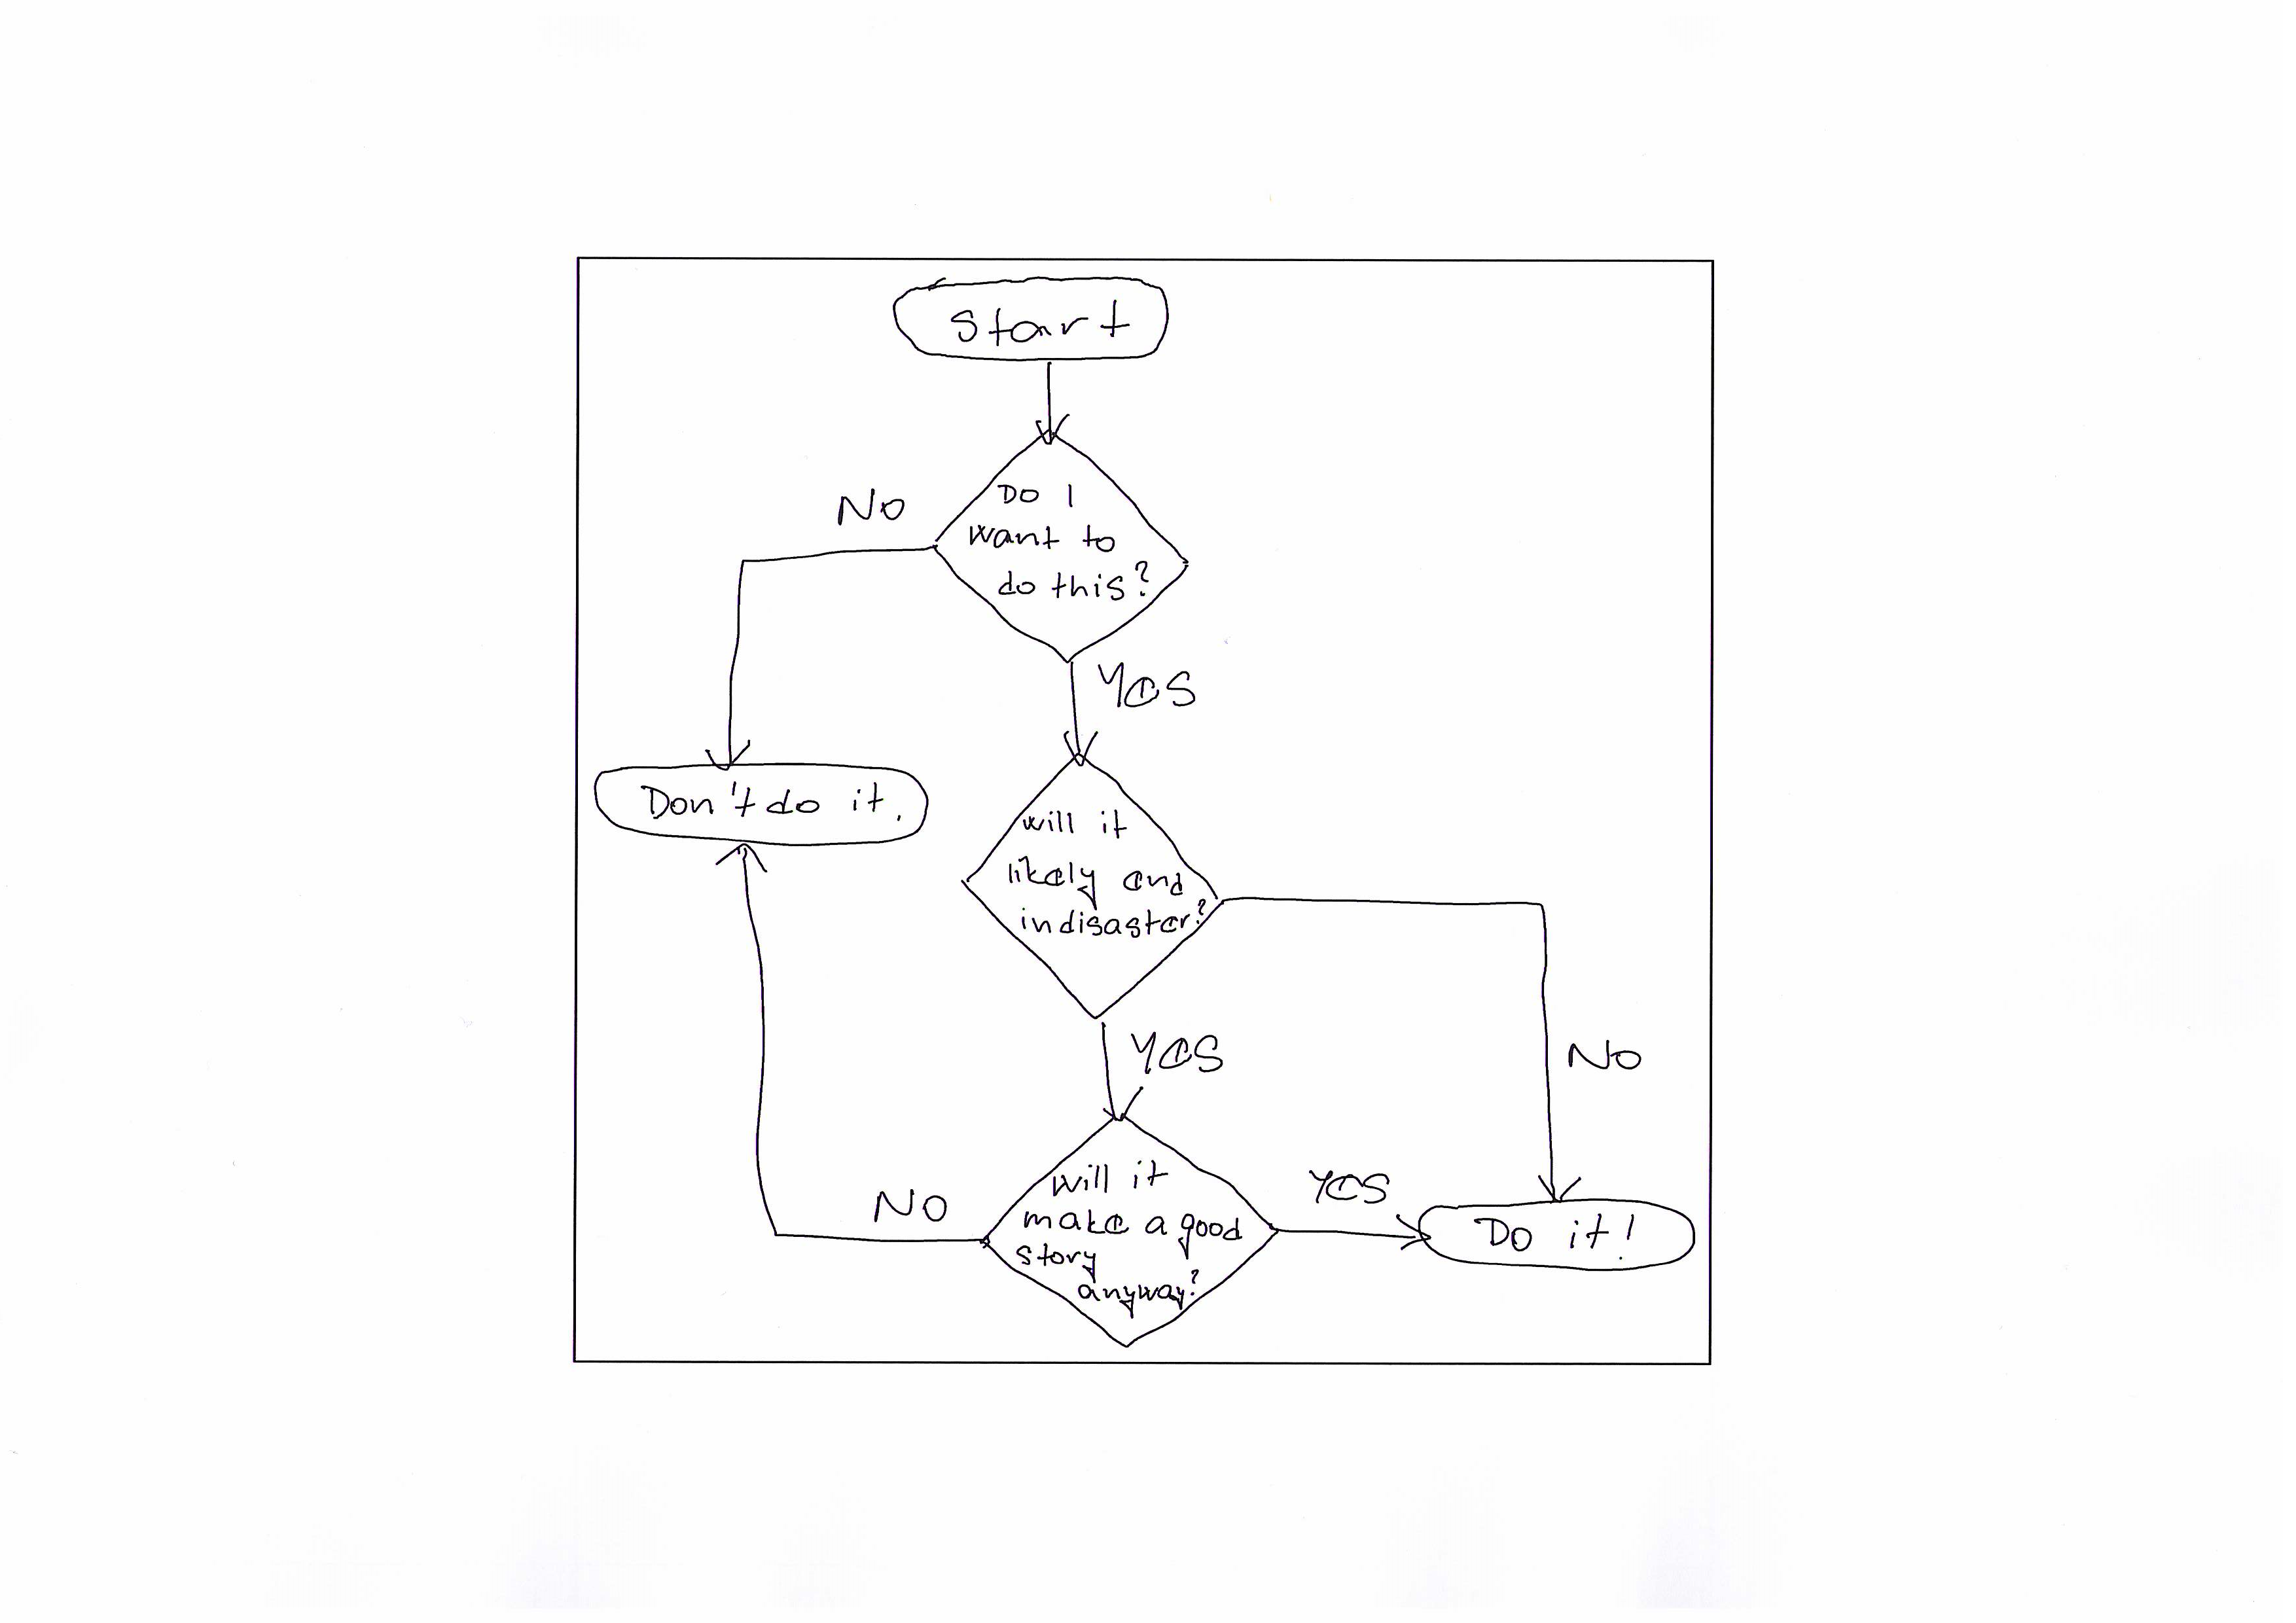 Start
Do I
want to
do this?
NO
YES
Don't do it.
will it
likely end
in disaster?
YES
NO
will it
make a good
story
anyway?
NO
YES
Do it!